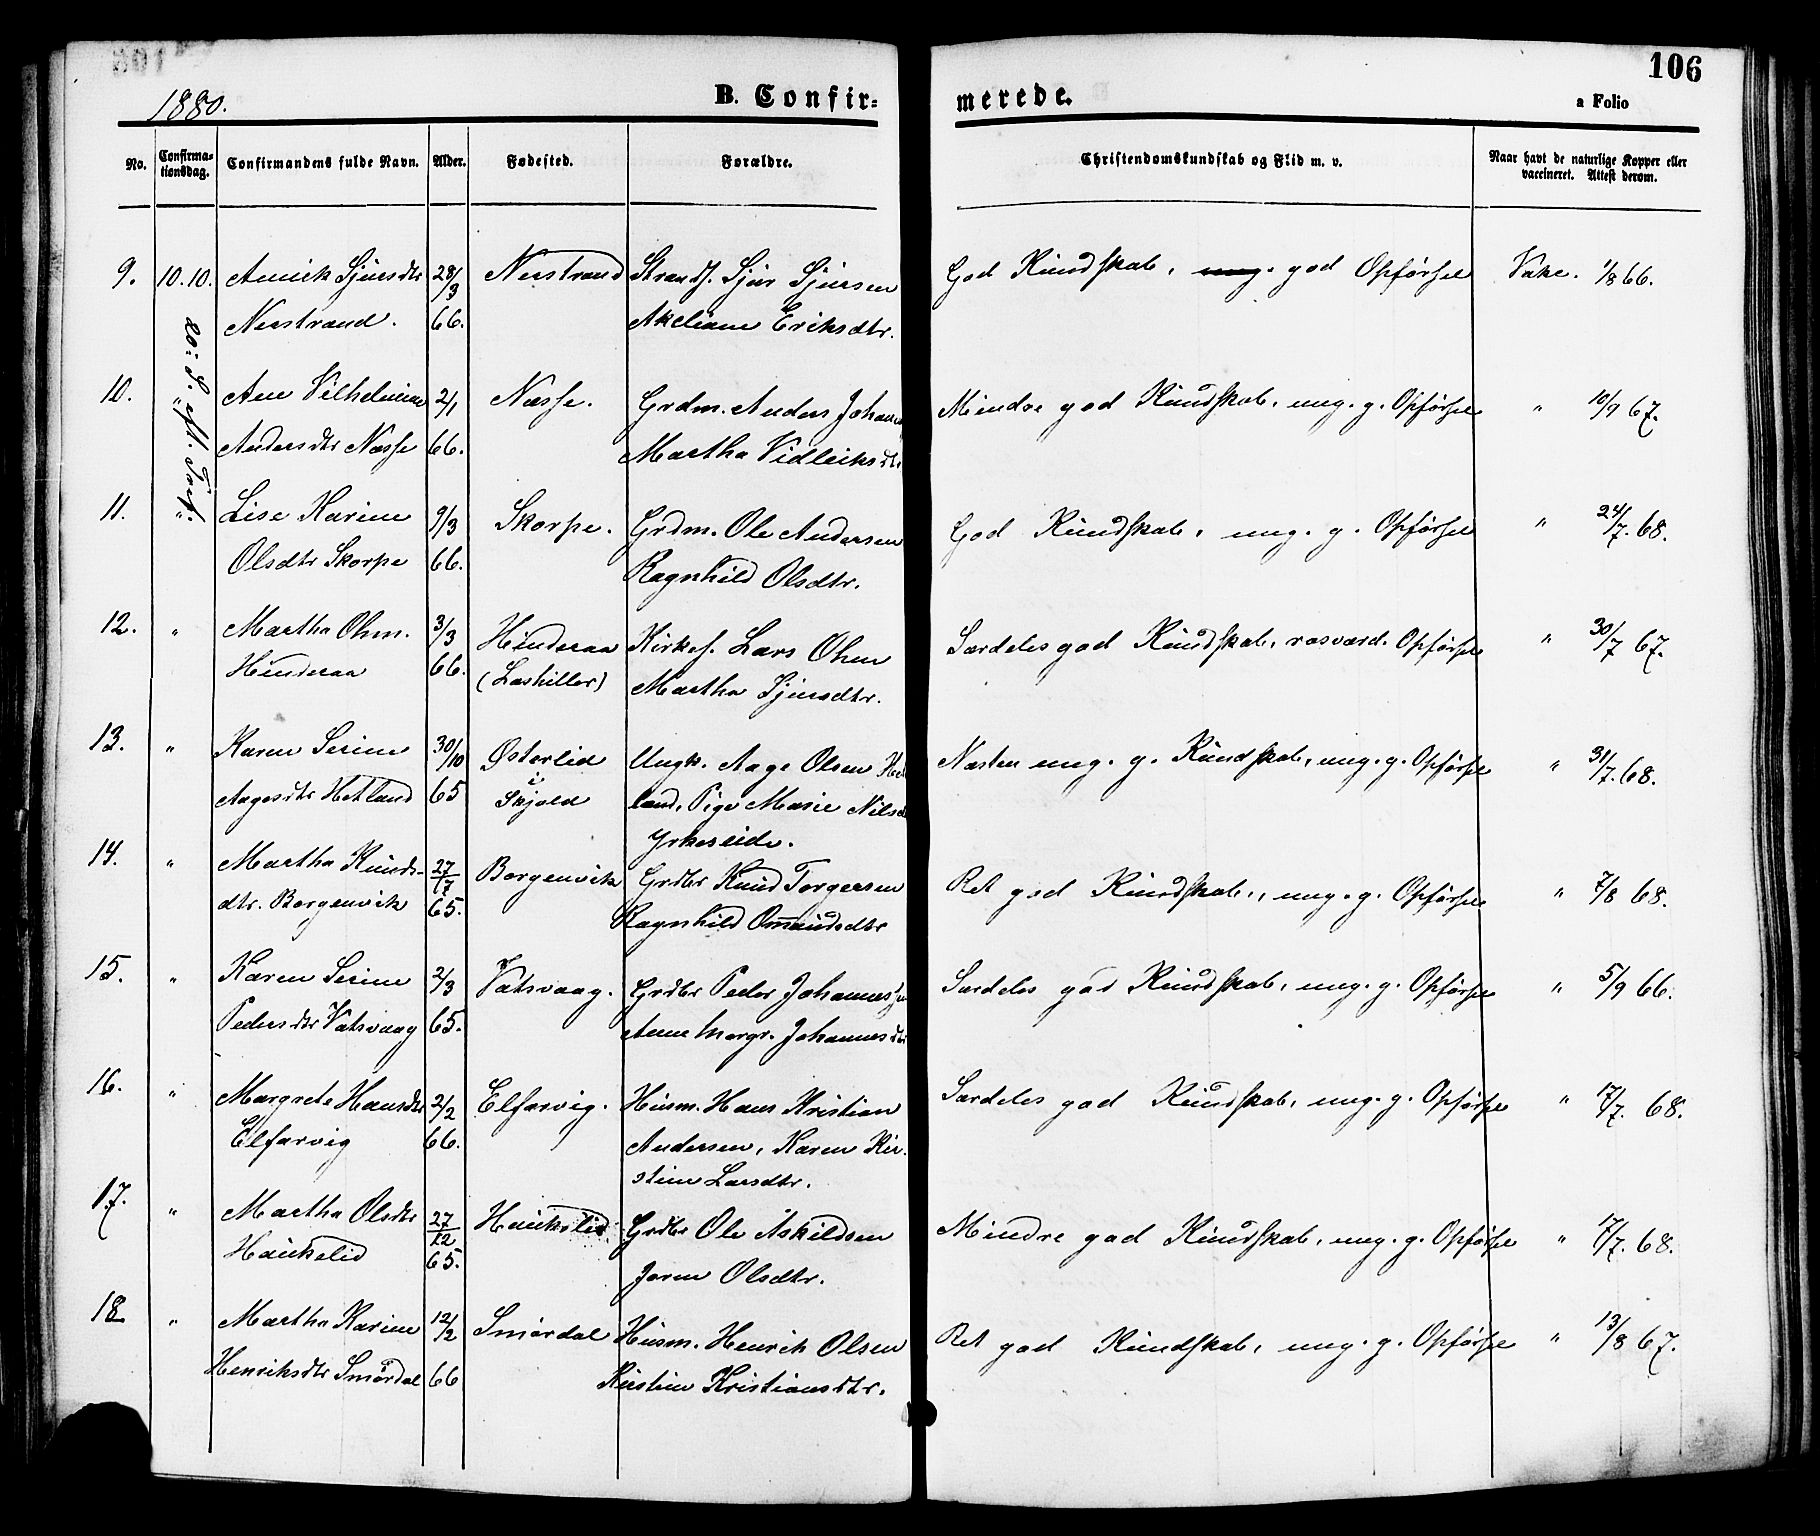 106
1880.
B. Confir-
merede.
a Folio
No.
Confirma-
tionsdag.
Confirmandens fulde Navn.
Alder.
Fødested.
Forældre.
Christendomskundskab og Flid m. v.
Naar havt de naturlige Kopper eller
vaccineret. Attest derom.
20: S. eft. Tref.
9. 10.10. Amiek Sjursdtr 28/3 Nerstrand Strands. Sjur Sjursen God Kundskab, meg. god Opførsel Vake. 1/8 66.
Nerstrand. 66. Akeliane Eriksdtr.
10. " Ane Vilhelmine 2/1 Næsse. Grdm. Anders Johanns Mindre god Kundskab, meg. g. Opførsel " 10/9 67.
Andersdtr Næsse 66. Martha Vidleiksdtr
11. " Lise Karine 9/3 Skorpe. Grdm. Ole Andersen God Kundskab, meg. g. Opførsel " 24/7. 68.
Olsdtr Skorpe 66. Ragnhild Olsdtr.
12. " Martha Ohm. 3/3 Hinderaa Kirkes. Lars Ohm Særdeles god Kundskab, rosværd. Opførsel " 30/7 67.
Hinderaa 66. (Lashiller) Martha Sjursdtr.
13. " Karen Serine 30/10 Østerlid Ungk. Aage Olsen Het Næsten meg. g. Kundskab, meg. g. Opførsel " 31/7. 68.
Aagesdtr Hetland 65 i Skjold land, Pige Marie Nilsd
Yrkeseide.
14. " Martha Knuds- 27/7 Borgenvik Grdbr Knud Torgersen Ret god Kundskab, meg. g. Opførsel " 7/8 68.
dtr. Borgenvik 65. Ragnhild Omundsdtr
15. " Karen Serine 2/3 Vatsvaag. Grdbr Peder Johannessen Særdeles god Kundskab, meg. g. Opførsel " 5/9 66.
Pedersdtr Vatsvaag 65. Anne Margr. Johannesdtr
16. " Margrete Hansdtr 2/2 Elfarvig. Husm. Hans Kristian Særdeles god Kundskab, meg. g. Opførsel " 17/7. 68.
Elfarvig 66. Andersen, Karen Kir-
stine Larsdtr.
17. " Martha Olsdtr 27/12 Haukelid Grdbr Ole Askildsen Mindre god Kundskab, meg. g. Opførsel " 17/7. 68.
Haukelid 65. Joren Olsdtr.
18 " Martha Karine 12/2 Smørdal Husm. Henrik Olsen Ret god Kundskab, meg. g. Opførsel " 13/8 67.
Henriksdtr Smørdal 66 Kirstine Kristiansdtr.